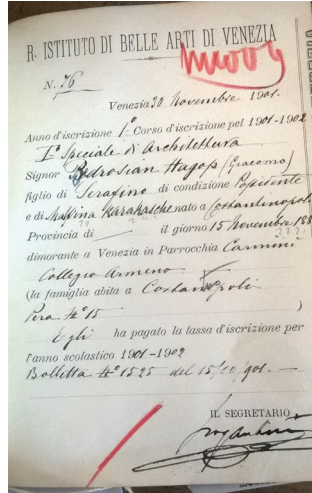 R. ISTITUTO DI BELLE ARTI DI VENEZIA
N. 76
Venezia 30 Novembre 1901.
Anno d'iscrizione 1º Corso d'iscrizione pel 1901-1902
Iº Speciale di Architettura
Signor Bedrosian Hagop (Giacomo)
figlio di Serafino di condizione Possidente
e di nato a Costantinopoli
Provincia di — il giorno 15 Novembre
dimorante a Venezia in Parrocchia Carmini
Collegio Armeno
(la famiglia abita a Costantinopoli
Pera Nº 15 )
Egli ha pagato la tassa d'iscrizione per
l'anno scolastico 1901-1902
Bolletta Nº 1525 del 15/10/901.—
IL SEGRETARIO